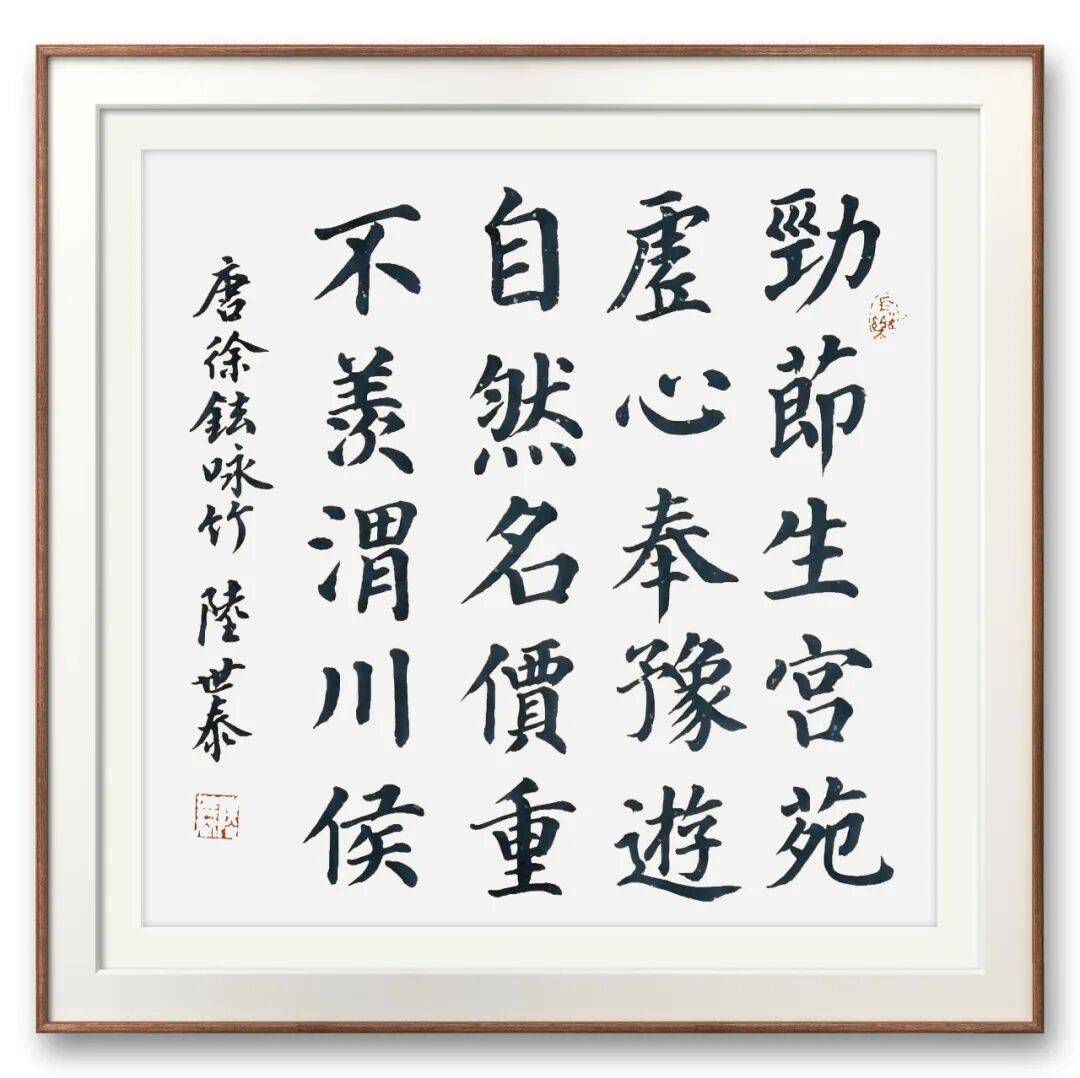 勁節生宮苑
虛心奉豫遊
自然名價重
不羨渭川侯
唐徐鉉咏竹 陸世泰